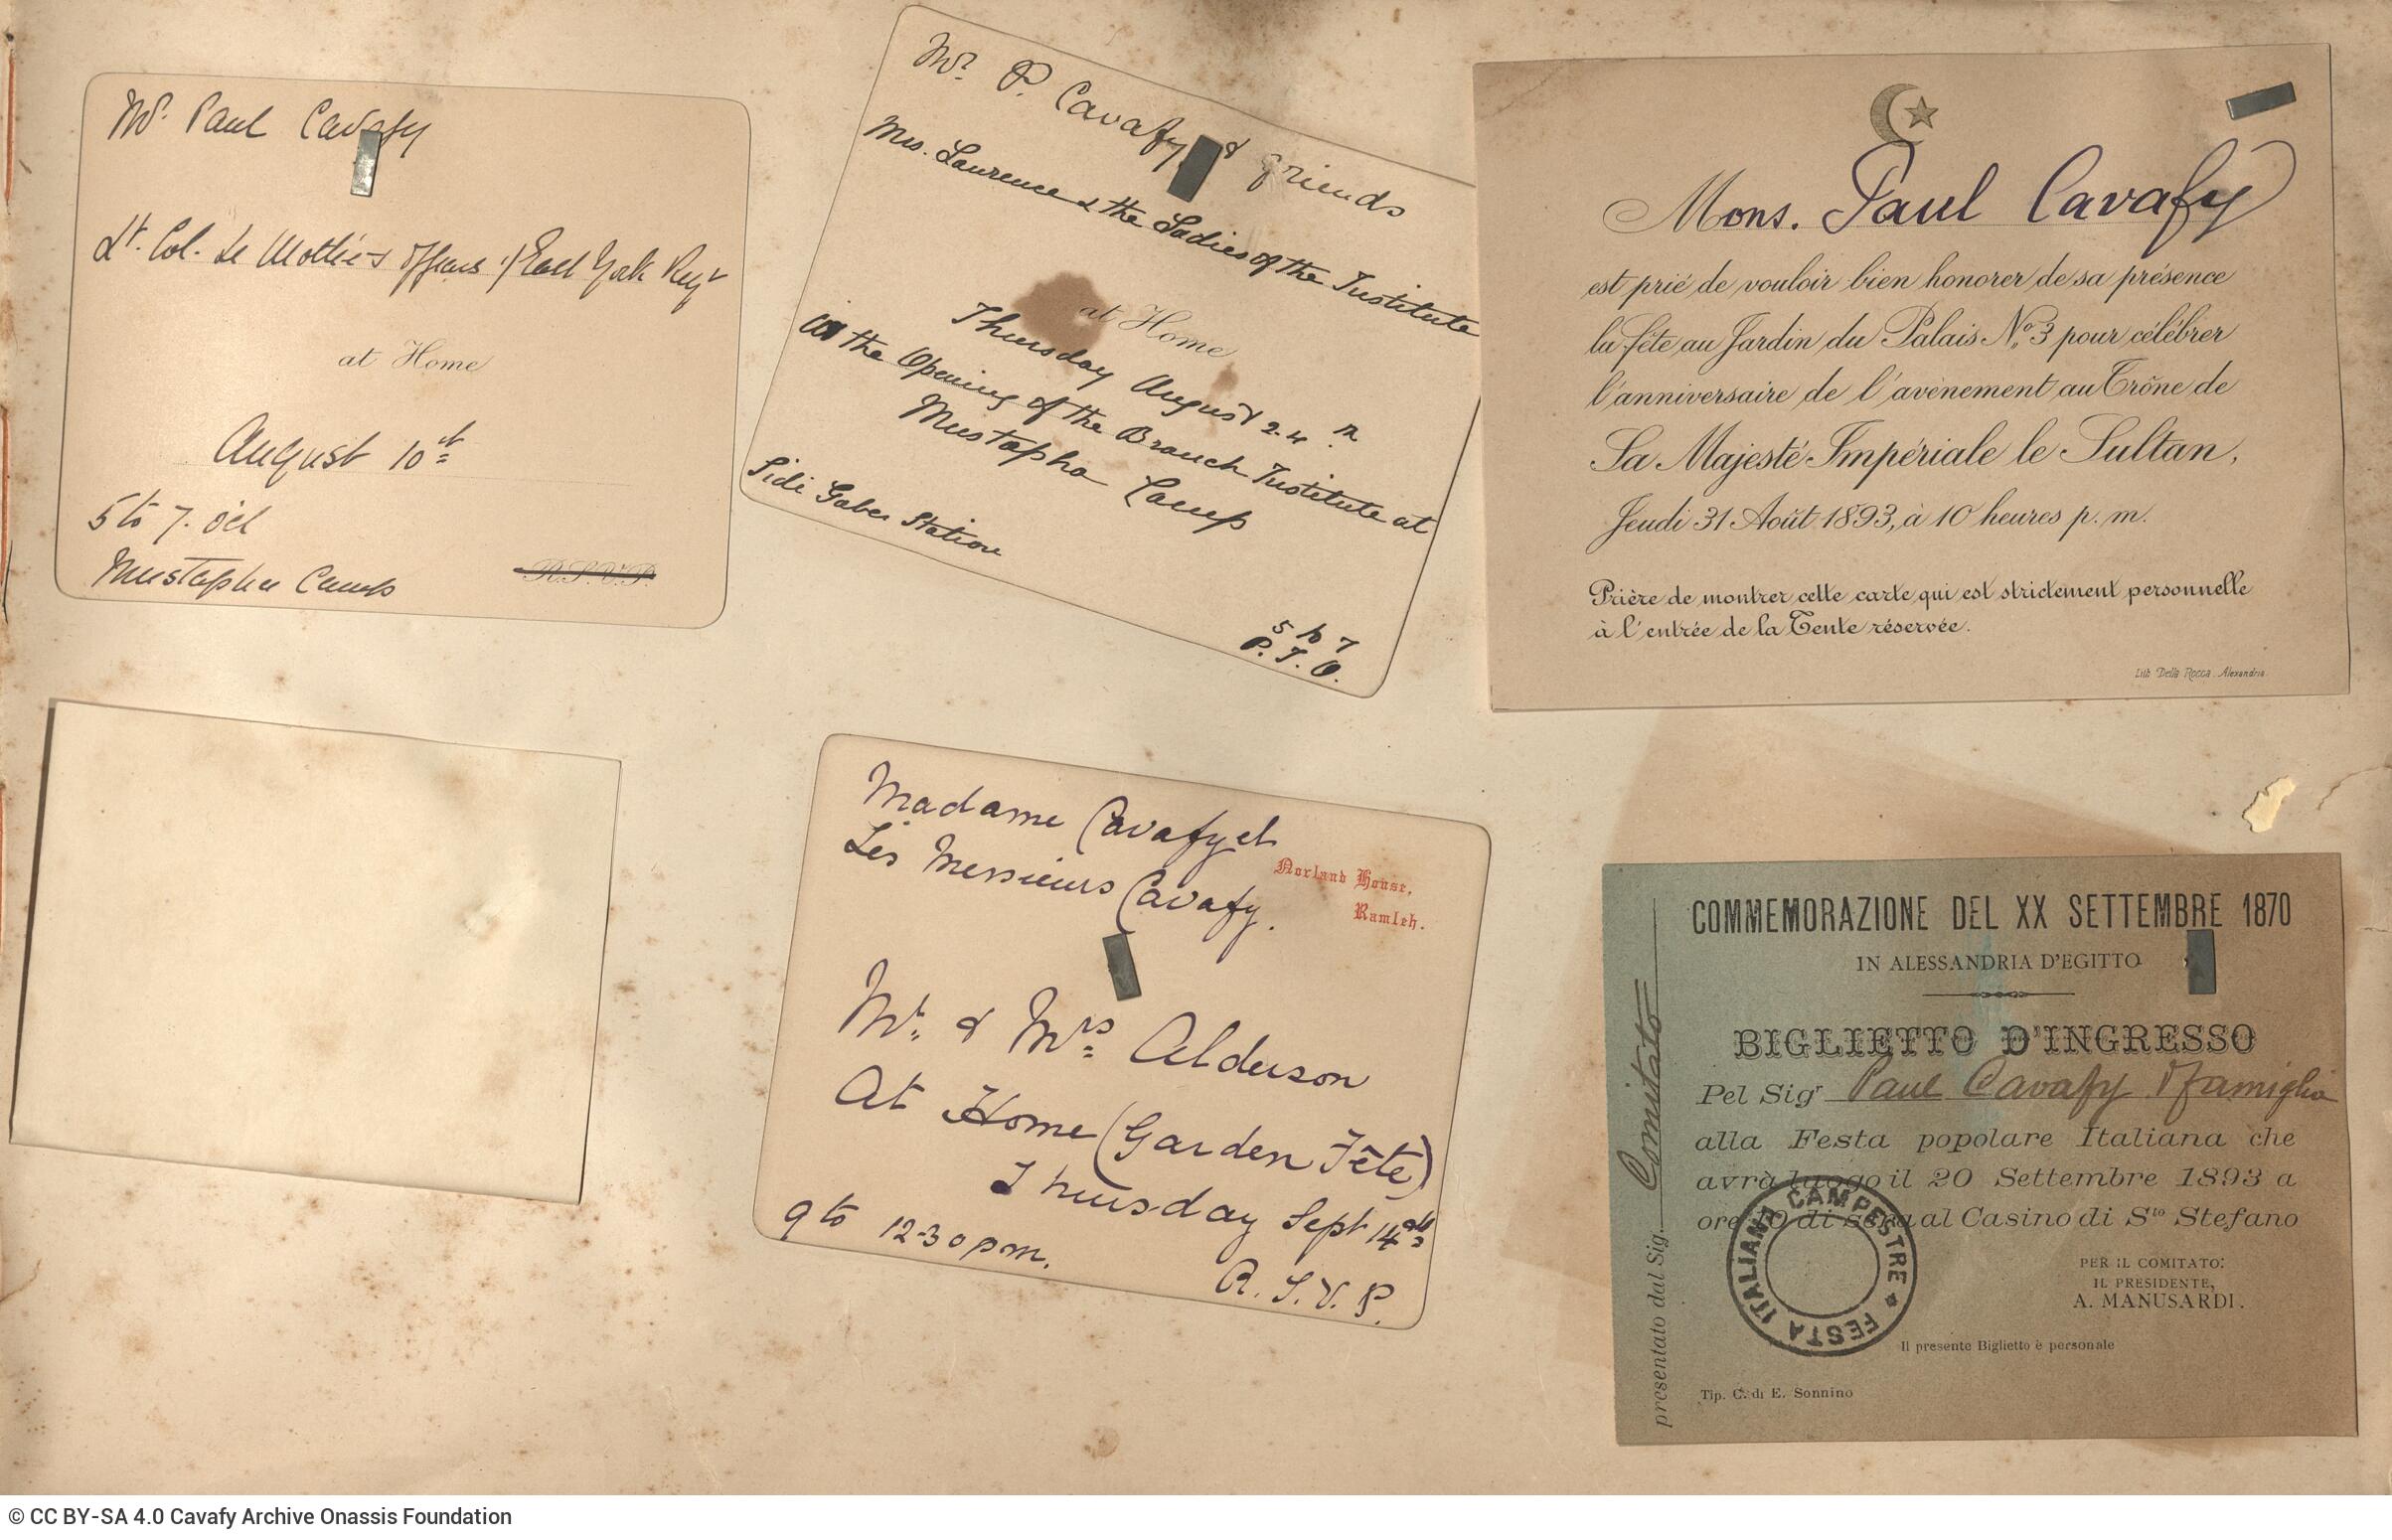 Mr. Paul Cavafy
Lt. Col. Le Mottée & Officers East York Regt
at Home
August 10th
5 to 7. ocl
Mustapha Camp
R.S.V.P.
Mr. P. Cavafy & friends
Mrs. Laurence & the Ladies of the Institute
at Home
Thursday August 24th
the Opening of the Branch Institute at
Mustapha Camp
Sidi Gaber Station
5 to 7
P.T.O.
Mons. Paul Cavafy
est prié de vouloir bien honorer de sa présence
la fête au Jardin du Palais No. 3 pour célébrer
l'anniversaire de l'avènement au Trône de
Sa Majesté Impériale le Sultan,
Jeudi 31 Août 1893, à 10 heures p.m.
Prière de montrer cette carte qui est strictement personnelle
à l'entrée de la Tente réservée.
Lith Della Rocca Alexandria
Madame Cavafy et
Les Messieurs Cavafy.
Norland House,
Ramleh.
Mr. & Mrs. Alderson
At Home (Garden Fête)
Thursday Sept 14th
9 to 12-30 pm.
R.S.V.P.
COMMEMORAZIONE DEL XX SETTEMBRE 1870
IN ALESSANDRIA D'EGITTO
BIGLIETTO D'INGRESSO
Pel Sigr Paul Cavafy & famiglia
alla Festa popolare Italiana che
avrà luogo il 20 Settembre 1893 a
ore 10 di sera al Casino di Sto Stefano
PER IL COMITATO:
IL PRESIDENTE,
A. MANUSARDI.
Il presente Biglietto è personale
Tip. C. di E. Sonnino
presentato dal Sig. Comitato
FESTA ITALIANA CAMPESTRE
© CC BY-SA 4.0 Cavafy Archive Onassis Foundation